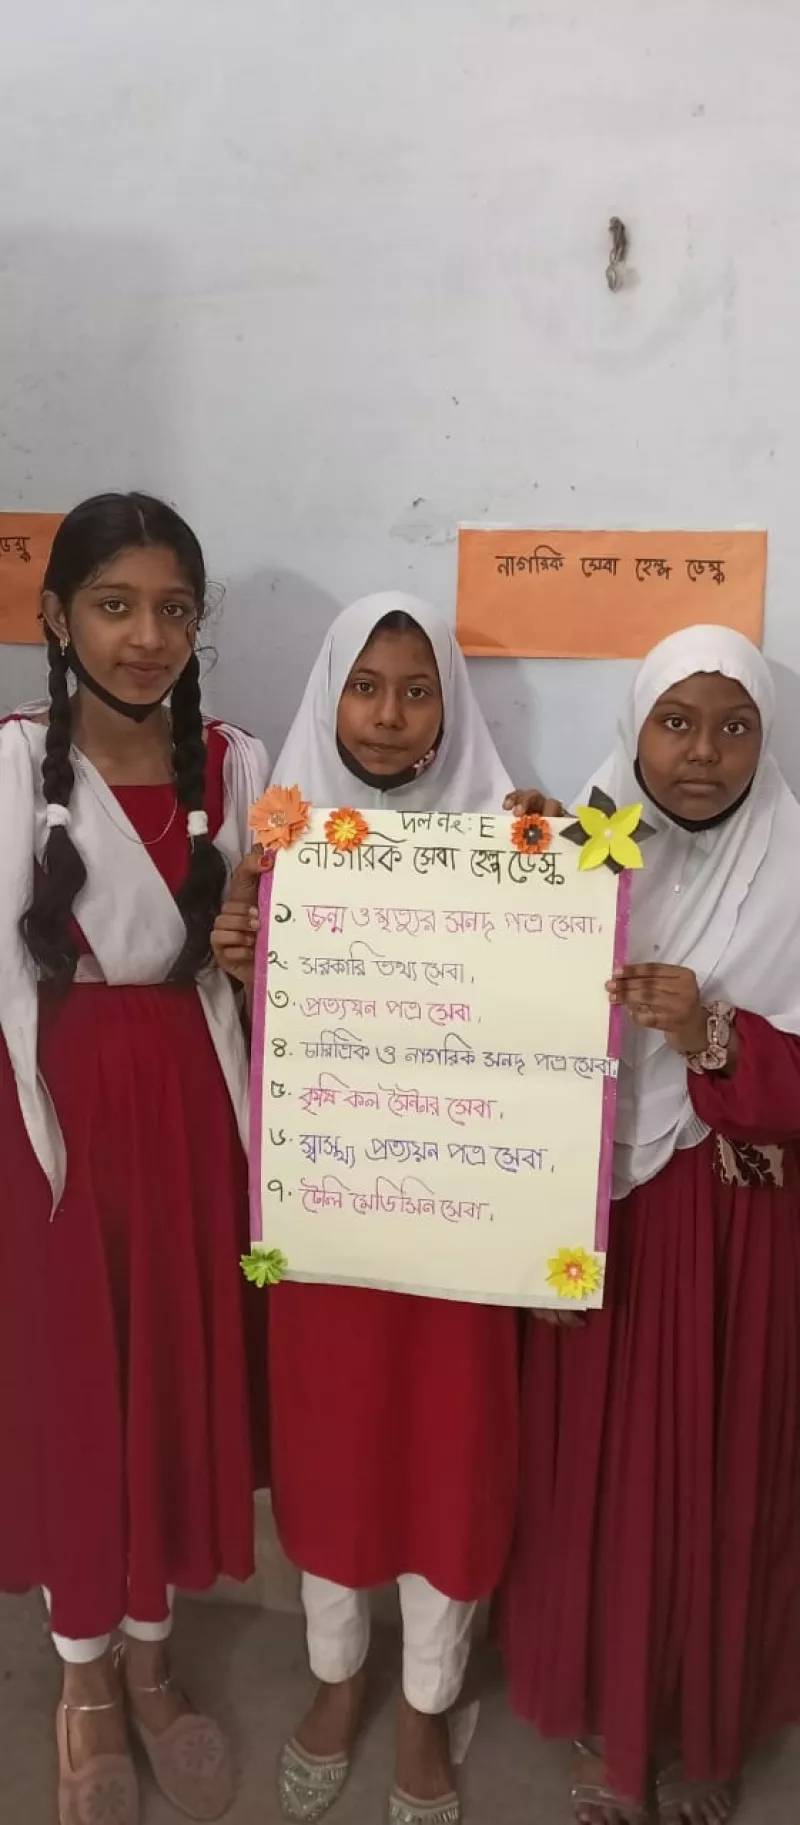 ডেস্ক
নাগরিক সেবা হেল্প ডেস্ক
দল নং: E
নাগরিক সেবা হেল্প ডেস্ক
১. জন্ম ও মৃত্যুর সনদ পত্র সেবা.
২. সরকারি তথ্য সেবা.
৩. প্রত্যয়ন পত্র সেবা.
৪. চারিত্রিক ও নাগরিক সনদ পত্র সেবা.
৫. কৃষি কল সেন্টার সেবা.
৬. স্বাস্থ্য প্রত্যয়ন পত্র সেবা.
৭. টেলি মেডিসিন সেবা.